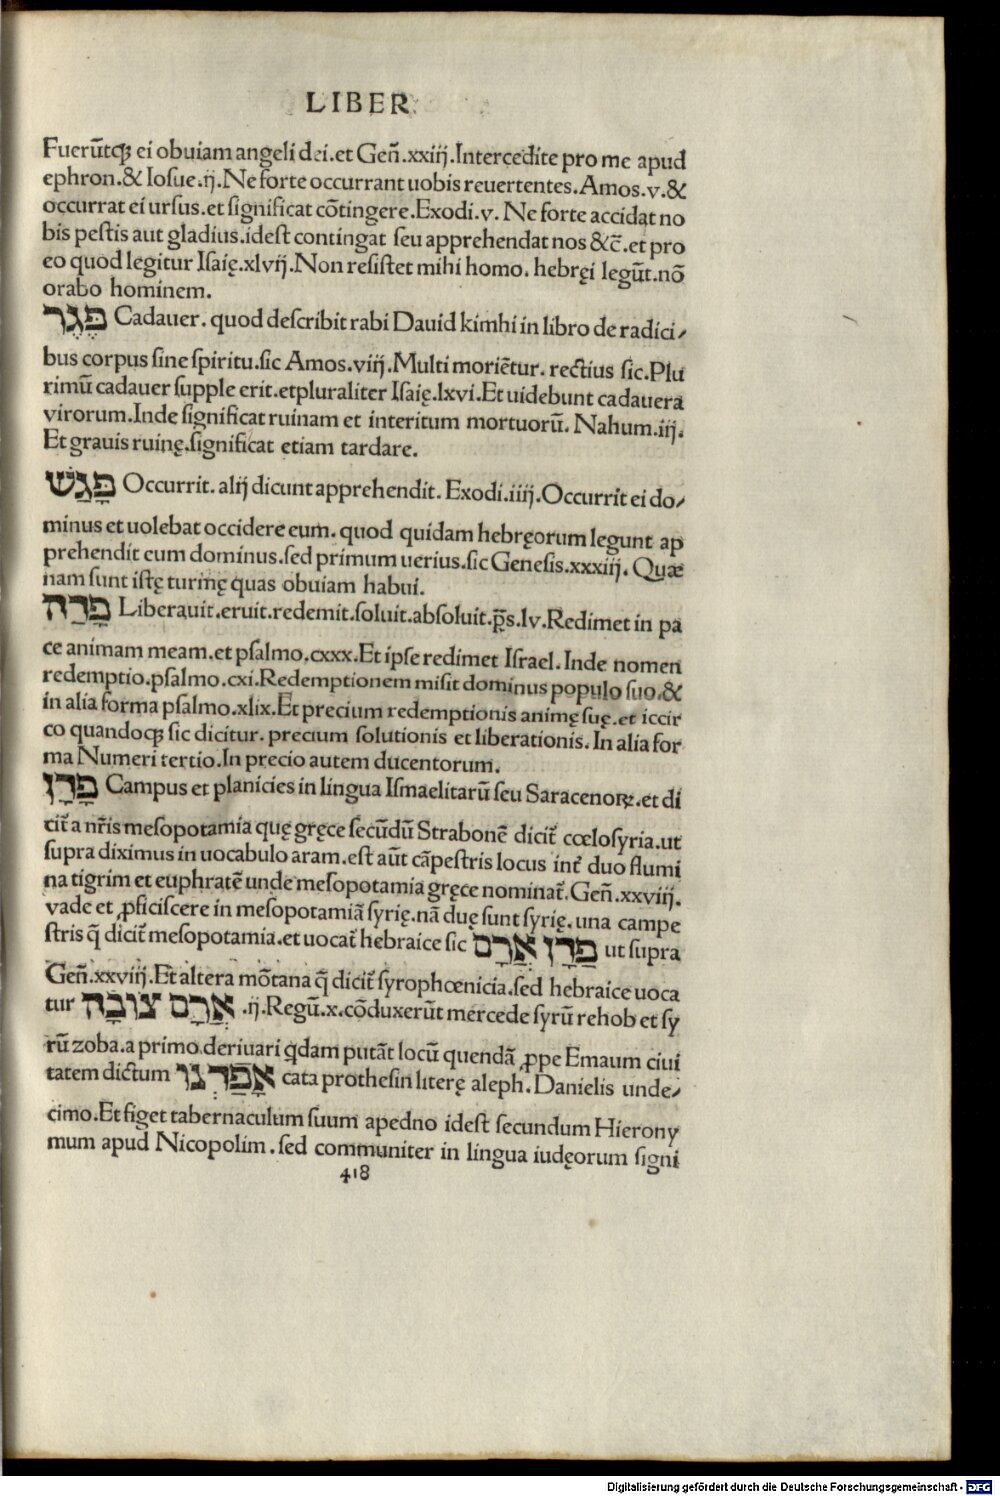 LIBER
Fuerūtqꝫ ei obuiam angeli dei.et Gen̄.xxiij.Intercedite pro me apud
ephron.& Iosue.ij.Ne forte occurrant uobis reuertentes.Amos.v.&
occurrat ei ursus.et significat cōtingere.Exodi.v. Ne forte accidat no
bis pestis aut gladius.idest contingat seu apprehendat nos &c̄.et pro
eo quod legitur Isaię.xlvij.Non resistet mihi homo. hebręi legūt.nō
orabo hominem.
פֶּגֶר Cadauer. quod describit rabi Dauid kimhi in libro de radici⸗
bus corpus sine spiritu.sic Amos.viij.Multi moriētur. rectius sic.Plu
rimū cadauer supple erit.etpluraliter Isaię.lxvi.Et uidebunt cadauera
virorum.Inde significat ruinam et interitum mortuorū. Nahum.iij.
Et grauis ruinę.significat etiam tardare.
פָּגַשׁ Occurrit. alij dicunt apprehendit. Exodi.iiij.Occurrit ei do⸗
minus et uolebat occidere eum. quod quidam hebręorum legunt ap
prehendit eum dominus.sed primum uerius.sic Genesis.xxxiij. Quæ
nam sunt istę turmę quas obuiam habui.
פָּדָה Liberauit.eruit.redemit.soluit.absoluit.p̄s.lv.Redimet in pa
ce animam meam.et psalmo.cxxx.Et ipse redimet Israel.Inde nomen
redemptio.psalmo.cxi.Redemptionem misit dominus populo suo.&
in alia forma psalmo.xlix.Et precium redemptionis animę suę.et iccir
co quandoqꝫ sic dicitur. precium solutionis et liberationis. In alia for
ma Numeri tertio.In precio autem ducentorum.
פָּדָן Campus et planicies in lingua Ismaelitarū seu Saracenoꝝ.et di
cit̄ a nr̄is mesopotamia quę gręce secūdū Strabonē dicit̄ cœlosyria.ut
supra diximus in uocabulo aram.est aūt cāpestris locus int̄ duo flumi
na tigrim et euphratē unde mesopotamia gręce nominat̄.Gen̄.xxviij.
vade et ꝓficiscere in mesopotamiā syrię.nā duę sunt syrię.una campe
stris q̄ dicit̄ mesopotamia.et uocat̄ hebraice sic פַּדָּן אֲרָם ut supra
Gen̄.xxviij.Et altera mōtana q̄ dicit̄ syrophœnicia.sed hebraice uoca
tur אֲרָם צוֹבָה .ij.Regū.x.cōduxerūt mercede syrū rehob et sy
rū zoba.a primo deriuari qdam putāt locū quendā ꝓpe Emaum ciui
tatem dictum אַפַּדְנוֹ cata prothesin literę aleph.Danielis unde⸗
cimo.Et figet tabernaculum suum apedno idest secundum Hierony
mum apud Nicopolim.sed communiter in lingua iudęorum signi
418
Digitalisierung gefördert durch die Deutsche Forschungsgemeinschaft - DFG